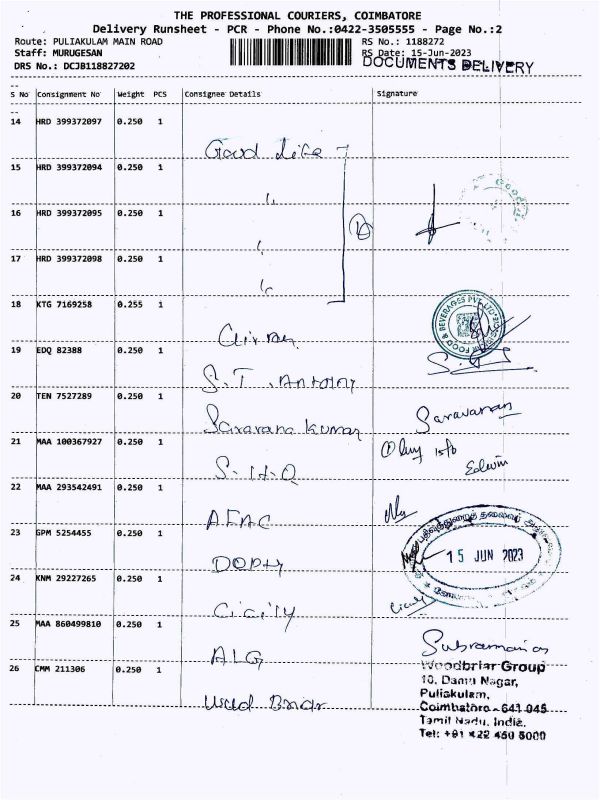 THE PROFESSIONAL COURIERS, COIMBATORE
Delivery Runsheet - PCR - Phone No.:0422-3505555 - Page No.:2
Route: PULIAKULAM MAIN ROAD RS No.: 1188272
Staff: MURUGESAN RS Date: 15-Jun-2023
DRS No.: DCJB118827202 DOCUMENTS DELIVERY
S No Consignment No Weight PCS Consignee Details Signature
14 HRD 399372097 0.250 1
Good Life
15 HRD 399372094 0.250 1
16 HRD 399372095 0.250 1
17 HRD 399372098 0.250 1
18 KTG 7169258 0.255 1
FOOD & BEVERAGES PVT LTD
19 EDQ 82388 0.250 1
S.T. Antony
20 TEN 7527289 0.250 1
Saravana Kumar Saravanan
21 MAA 100367927 0.250 1
S.H.Q Edwin
22 MAA 293542491 0.250 1
23 GPM 5254455 0.250 1
15 JUN 2023
24 KNM 29227265 0.250 1
Cicily
25 MAA 860499810 0.250 1
ALG
26 CMM 211306 0.250 1
Woodbriar Group
Puliakulam,
Coimbatore - 641 045
Tamil Nadu, India.